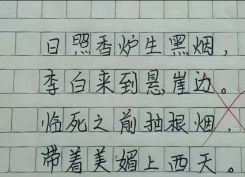 日照香炉生黑烟,
李白来到悬崖边。
临死之前抽根烟,
带着美媚上西天。